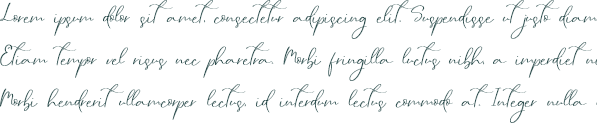 Lorem ipsum dolor sit amet, consectetur adipiscing elit. Suspendisse ut justo diam
Etiam tempor vel risus nec pharetra. Morbi fringilla luctus nibh, a imperdiet
Morbi hendrerit ullamcorper lectus, id interdum lectus commodo at. Integer nulla